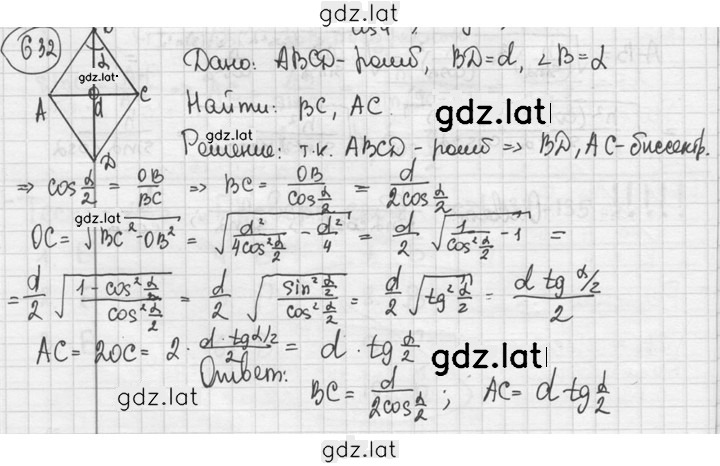 gdz.lat
632
α
gdz.lat
A C
d
D
Дано: ABCD - ромб, BD = d, ∠B = α
Найти: BC, AC.
gdz.lat
gdz.lat
Решение: т.к. ABCD - ромб => BD, AC - биссектр.
=> cos α/2 = OB/BC => BC = OB/cos α/2 = d/2cos α/2
gdz.lat
OC = √(BC² - OB²) = √(d²/4cos² α/2 - d²/4) = d/2 √(1/cos² α/2 - 1) =
= d/2 √((1 - cos² α/2)/cos² α/2) = d/2 √(sin² α/2 / cos² α/2) = d/2 √(tg² α/2) = d tg α/2 / 2
AC = 2OC = 2 · d · tg α/2 / 2 = d · tg α/2
gdz.lat
Ответ:
BC = d/2cos α/2 ; AC = d tg α/2
gdz.lat
gdz.lat